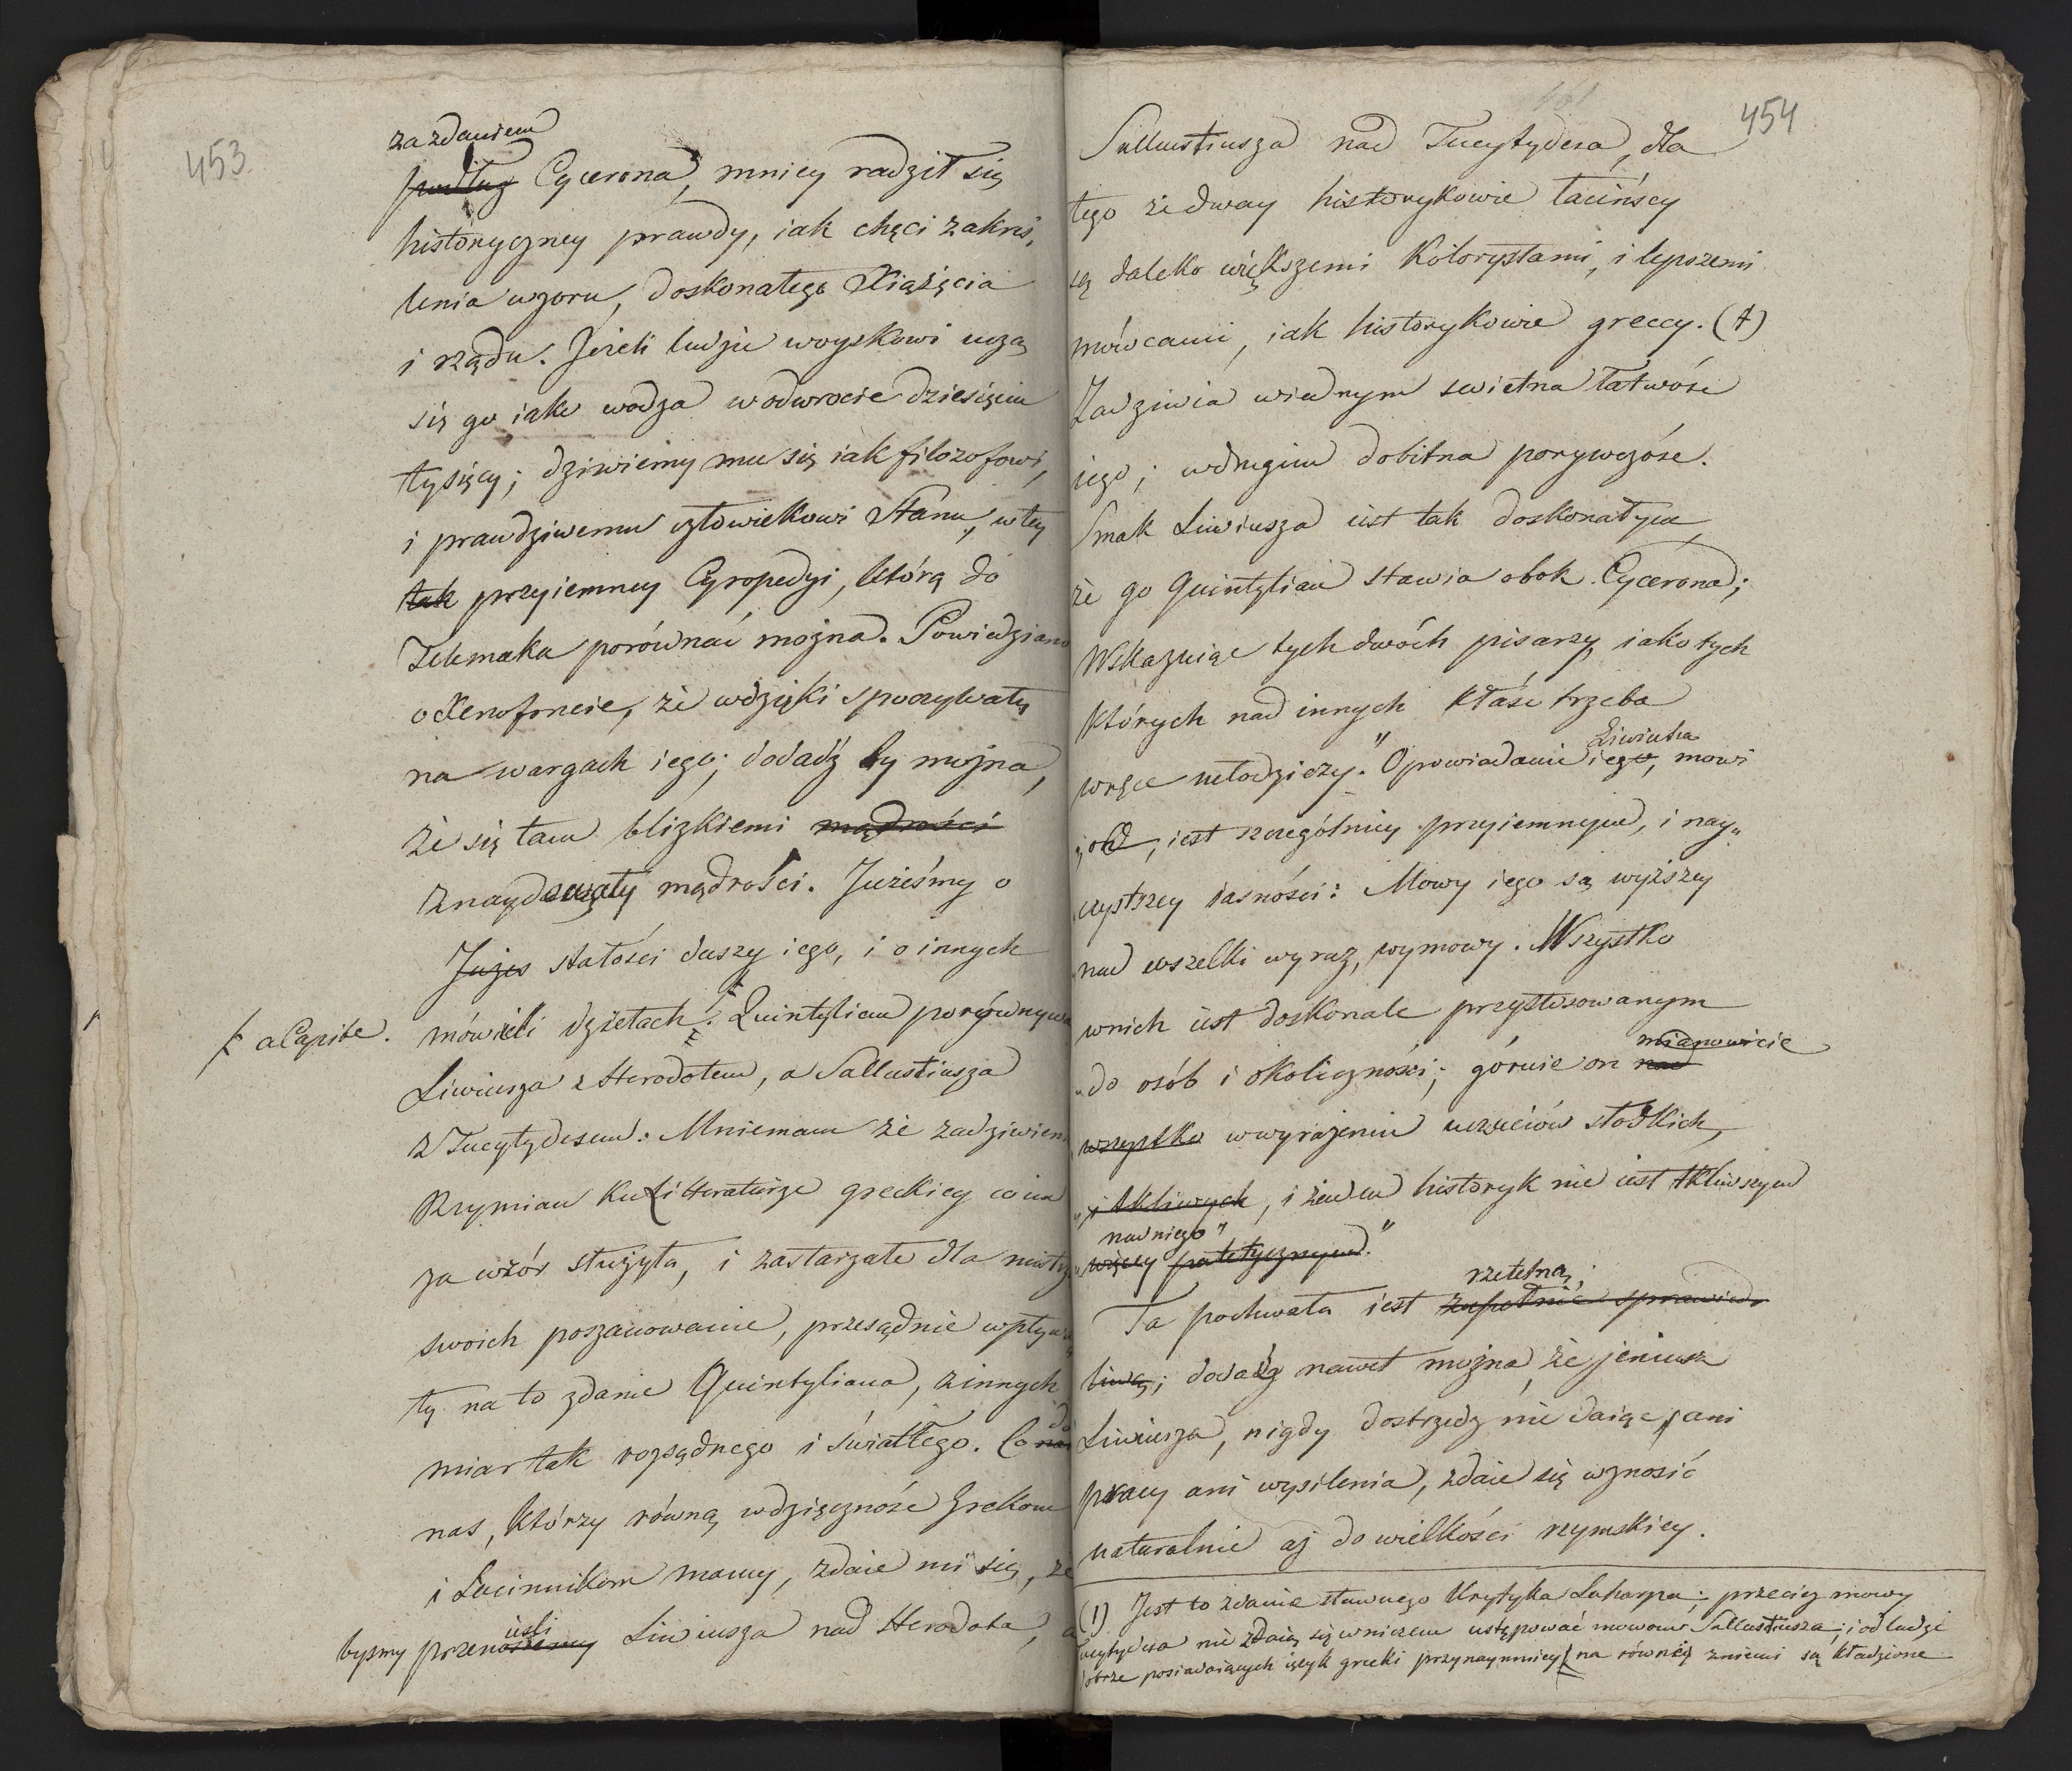 453
za zdaniem
podług Cycerona, mniey radził się
historyczney prawdy, iak chęci zakrés,
lenia wzoru, doskonałego Xiążęcia
i rządu. Jeżeli ludzie woyskowi uczą
się go iako wodza w odwrocie dziesięciu
tysięcy; dziwiemy mu się iak filozofowi,
i prawdziwemu człowiekowi Stanu, w tey
tak przyiemney Cyropedyi, którą do
Telemaka porównać można. Powiedziano
o Xenofoncie, że wdzięki spoczywały
na wargach iego; dodadź by można,
że się tam blizkiemi mądrości
znaydowały mądrości. Jużeśmy o
Jużes stałości duszy iego, i o innych
a Capite. mówili dziełach. Quintylian porównywa
Liwiusza z Herodotem, a Sallustiusza
z Tucytydesem: Mniemam że zadziwien
Rzymian ku Litteraturze greckiey co im
za wzór służyła, i zastarzałe dla mistrz
swoich poszanowanie, przesądnie wpłynę
ły na to zdanie Quintyliana, z innych
miar tak rozsądnego i światłego. Co do
nas, którzy równą wdzięczność Grekom
i Lacinnikom mamy, zdaie mi się, że
iesli
bysmy przenosiemy Liwiusza nad Herodota, a
454
Sallustiusza nad Tucytydesa, dla
tego że dway historykowie łacińscy
są daleko większemi Kolorystami, i lepszemi
mówcami, iak historykowie greccy. (1)
Zadziwia w iednym swietna łatwość
iego; w drugim dobitna porywczość.
Smak Liwiusza iest tak doskonałym,
że go Quintylian stawia obok Cycerona;
Wskazuiąc tych dwóch pisarzy, iako tych
których nad innych kłaść trzeba
Liwiusza
w ręce młodzieży. "Opowiadanie iego, mowi
iest szczególniey przyiemnym, i nay„
czystrzey iasności: Mowy iego są wyższey
nad wszelki wyraz, wymowy. Wszystko
w nich iest doskonale przystosowanym
mianowicie
„do osób i okoliczności; góruie on nad
wszystko w wyrażeniu uczuciów słodkich,
„i tkliwych, i żaden historyk nie iest tkliwszym
nad niego"
więcey patetycznym."
rzetelną;
Ta pochwała iest zupełnie sprawied„
liwą; dodadź nawet można, że jeniusz
Liwiusza, nigdy dostrzedz nie daiąc, ani
pracy ani wysilenia, zdaie się wznosić
naturalnie aż do wielkości rzymskiey.
(1) Jest to zdanie sławnego Krytyka Laharpa; przecież mowy
Tucytydesa nie zdaią się w niczem ustępować mowom Sallustiusza; i od ludzi
dobrze posiadaiących ięzyk grecki przynaymniey na równi z niemi są kładzione